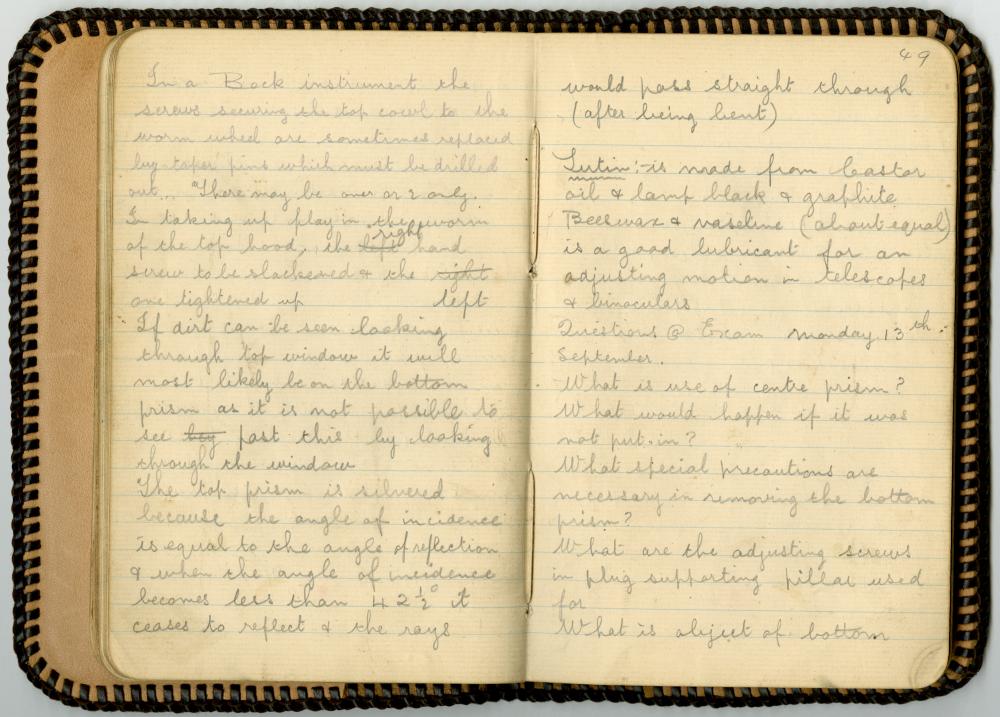 In a Beck instrument the
screws securing the top cowl to the
worm wheel are sometimes replaced
by taper pins which must be drilled
out. "There may be one or 2 only.
In taking up play in the worm
of the top hood, the left right hand
screw to be slackened & the right
one tightened up left
If dirt can be seen looking
through top window it will
most likely be on the bottom
prism as it is not possible to
see bey past this by looking
through the window
The top prism is silvered
because the angle of incidence
is equal to the angle of reflection
& when the angle of incidence
becomes less than 42 ½° it
ceases to reflect & the rays
49
would pass straight through
(after being bent)
Lutin:- is made from Castor
oil & lamp black & graphite
Beeswax & vaseline (about equal)
is a good lubricant for an
adjusting motion in telescopes
& binoculars
Questions @ Exam Monday 13th.
September.
What is use of centre prism?
What would happen if it was
not put in?
What special precautions are
necessary in removing the bottom
prism?
What are the adjusting screws
in plug supporting pillar used
for
What is object of bottom